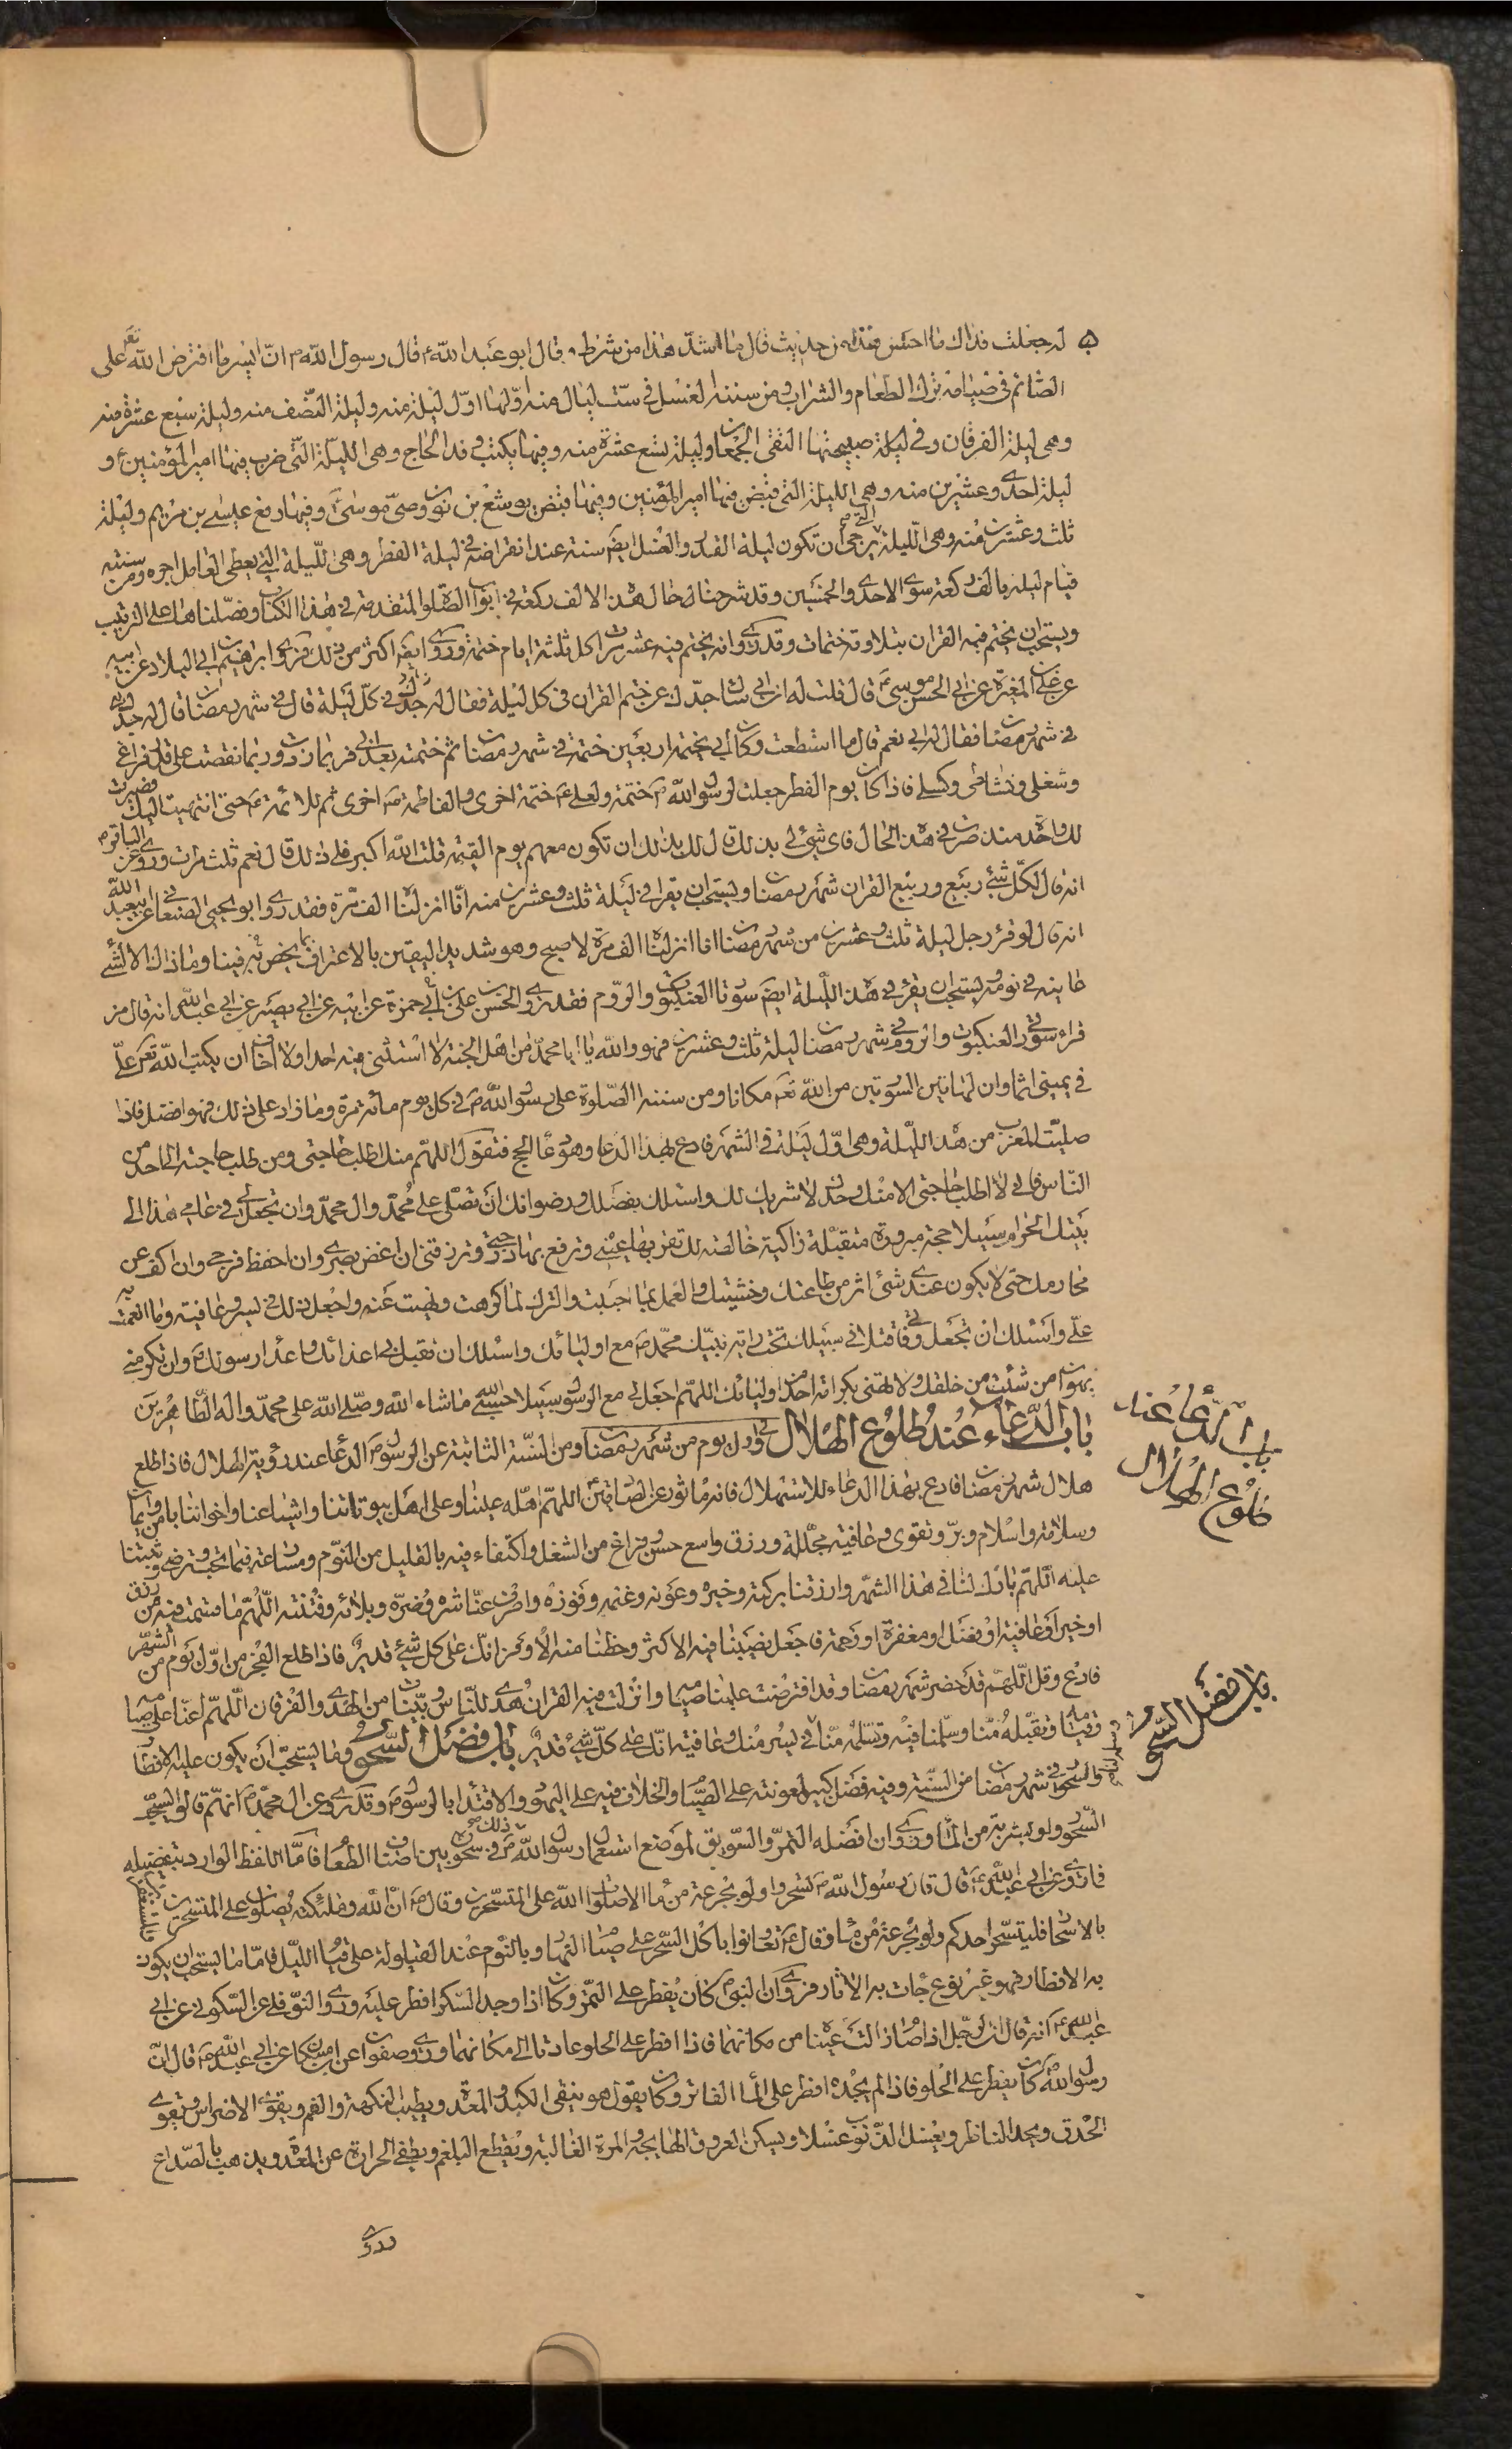 له جعلت فداك ما احسن هذا من حديث قال ما اشد هذا من شرط قال ابو عبد الله ع قال رسول الله ص ان ايسر ما افترض الله تعم على
الصائم في صيامه ترك الطعام والشراب ومن سننه الغسل في ست ليال منه اولها اول ليلة منه وليلة النصف منه وليلة سبع عشرة منه
وهي ليلة الفرقان وفي ليلة صبيحتها التقى الجمعان وليلة تسع عشرة منه وفيها يكتب وفد الحاج وهي الليلة التي ضرب فيها امير المؤمنين ع و
ليلة احدى وعشرين منه وهي الليلة التي قبض فيها امير المؤمنين وفيها قبض يوشع بن نون وصي موسى ع وفيها رفع عيسى بن مريم وليلة
ثلث وعشرين منه وهي الليلة التي يرجى ان تكون ليلة القدر والغسل ايضا سنة عند انقراضه في ليلة الفطر وهي الليلة التي يعطى العامل اجره ومن سننه
قيام ليله بالف ركعة سوى الاحدى والخمسين وقد شرحنا حال هذه الالف ركعة في ابواب الصلوة المتقدمة في هذا الكتاب وفصلناها على الترتيب
ويستحب ان يختم فيه القران بتلاوته ختمات وقد روى انه يختم فيه عشر مرات كل ثلثة ايام ختمة وروى ايضا اكثر من ذلك فروى ابراهيم ابي البلاد عن ابيه
عن علي بن المغيرة عن ابي الحسن موسى ع قال قلت له ان ابي سال جدك عن ختم القران في كل ليلة فقال له جدك في كل ليلة قال في شهر رمضان قال له جدك
في شهر رمضان فقال له ابي نعم قال ما استطعت وكان ابي يختمه اربعين ختمة في شهر رمضان ثم ختمته بعد ابي فربما زدت وربما نقصت على قدر فراغي
وشغلي ونشاطي وكسلي فاذا كان يوم الفطر جعلت لرسول الله ص ختمة ولعلي ع ختمة اخرى ولفاطمة ع اخرى ثم للائمة ع حتى انتهيت اليك فصيرت
لك واحدة منذ صرت في هذه الحال فاى شيئ لي بذلك قال لك بذلك ان تكون معهم يوم القيمة قلت الله اكبر فلي ذلك قال نعم ثلث مرات وروى عن الباقر ع
انه قال لكل شيئ ربيع وربيع القران شهر رمضان ويستحب ان يقرا في ليلة ثلث وعشرين منه انا انزلناه الف مرة فقد روى ابو يحيى الصنعاني عن ابيعبد الله
انه قال لو قرء رجل ليلة ثلث وعشرين من شهر رمضان انا انزلناه الف مرة لاصبح وهو شديد اليقين بالاعتراف بما يخص به فينا وما ذاك الا لشئ
عاينه في نومه ويستحب ان يقرء في هذه الليلة ايضا سورتا العنكبوت والروم فقد روى الحسن بن علي بن ابي حمزة عن ابيه عن ابي بصير عن ابي عبد الله انه قال من
قراء سورتي العنكبوت والروم في شهر رمضان ليلة ثلث وعشرين فهو والله يا ابا محمد من اهل الجنة لا استثنى فيه احدا ولا اخاف ان يكتب الله تعم علي
في يميني اثما وان لهاتين السورتين من الله تعم مكانا ومن سننه الصلوة على رسول الله ص في كل يوم مائة مرة وما زاد على ذلك فهو افضل فاذا
صليت المغرب من هذه الليلة وهي اول ليلة في الشهر فادع بهذا الدعا وهو دعا الحج فتقول اللهم منك اطلب حاجتي ومن طلب حاجته الى احد من
الناس فاني لا اطلب حاجتي الا منك وحدك لا شريك لك واسئلك بفضلك ورضوانك ان تصلي على محمد وال محمد وان تجعل لي في عامي هذا الى
بيتك الحرام سبيلا حجة مبرورة متقبلة زاكية خالصة لك تقر بها عيني وترفع بها درجتي وترزقني ان اغض بصري وان احفظ فرجي وان اكف عن
محارمك حتى لا يكون عندي شئ اثر من طاعتك وخشيتك والعمل بما احببت والترك لما كرهت ونهيت عنه واجعل ذلك في يسر وعافية وما انعمت به
علي واسئلك ان تجعل وفاتي قتلا في سبيلك تحت راية نبيك محمد ص مع اوليائك واسئلك ان تقتل بي اعدائك واعداء رسولك ص وان تكرمني
بهوان من شئت من خلقك ولا تهني بكرامة احد من اوليائك اللهم اجعل لي مع الرسول سبيلا حسبي الله ما شاء الله وصلى الله على محمد واله الطاهرين
باب الدعاء عند طلوع الهلال في اول يوم من شهر رمضان ومن السنة الثابتة عن الرسول ص الدعا عند رؤية الهلال فاذا طلع
هلال شهر رمضان فادع بهذا الدعاء للاستهلال فانه ماثور عن الصادقين اللهم اهله علينا وعلى اهل بيوتاتنا واشياعنا واخواننا بامن وايمان
وسلامة واسلام وبر وتقوى وعافية مجللة ورزق واسع حسن وفراغ من الشغل واكتفاء فيه بالقليل من النوم ومسارعة فيما تحب وترضى وثبتنا
عليه اللهم بارك لنا في هذا الشهر وارزقنا بركته وخيره وعونه وغنمه وفوزه واصرف عنا شره وضره وبلائه وفتنته اللهم ما قسمت فيه من رزق
او خير او عافية او فضل او مغفرة او رحمة فاجعل نصيبنا فيه الاكثر وحظنا منه الاوفر انك على كل شئ قدير فاذا طلع الفجر من اول يوم من الشهر
فادع وقل اللهم قد حضر شهر رمضان وقد افترضت علينا صيامه وانزلت فيه القران هدى للناس وبينات من الهدى والفرقان اللهم اعنا على صيامه
وقيامه وتقبله منا وسلمنا فيه وتسلمه منا في يسر منك وعافية انك على كل شئ قدير باب فضل السحور وما يستحب ان يكون عليه الافطار
والسحور في شهر رمضان من السنة وفيه فضل كبير لمعونته على الصيام والخلاف فيه على اليهود والاقتداء بالرسول ص وقد روى عن ال محمد ع انهم قالوا يستحب
السحور ولو بشربة من الماء وروى ان افضله التمر والسويق لموضع استعمال رسول الله ص ذلك في سحوره بين اصناف الطعام فاما اللفظ الوارد بتفضيله
فانه روى عن ابي عبد الله ع قال قال رسول الله ص تسحروا ولو بجرعة من ماء الا صلوات الله على المتسحرين وقال ص ان الله وملئكته يصلون على المتسحرين والمستغفرين
بالاسحار فليتسحر احدكم ولو بجرعة من ماء وقال ع تعاونوا باكل السحر على صيام النهار وبالنوم عند القيلولة على قيام الليل فاما ما يستحب ان يكون
به الافطار فهو غير نوع جائت به الاثار فروى ان النبي ص كان يفطر على التمر وكان اذا وجد السكر افطر عليه وروى النوفلي عن السكوني عن ابي
عبد الله ع انه قال ان الرجل اذا صام زالت عيناه من مكانهما فاذا افطر على الحلو عادتا الى مكانهما وروى صفوان عن ابن مسكان عن ابي عبد الله ع قال ان
رسول الله ص كان يفطر على الحلو فاذا لم يجده افطر على الماء الفاتر وكان يقول هو ينقى الكبد والمعدة ويطيب النكهة والفم ويقوى الاضراس ويقوى
الحدق ويجد الناظر ويغسل الذنوب غسلا ويسكن العروق الهايجة والمرة الغالبة ويقطع البلغم ويطفى الحرارة عن المعدة ويذهب بالصداع
باب الدعا عند
طلوع الهلال
باب فضل السحور
وروى